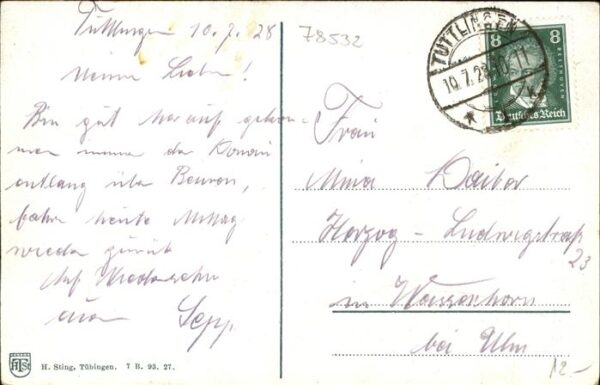 Tuttlingen 10.7.28
Meine Lieben!
Bin gut herauf gekom-
men immer der Donau
entlang über Beuron,
fahre heute Mittag
wieder zurück
Auf Wiedersehn
euer Sepp.
H. Sting, Tübingen. 7 B. 93. 27.
78532
TUTTLINGEN
10.7.28. 10-11
8 8
BEETHOVEN
Deutsches Reich
Frau
Mina Daiber
Herzog-Ludwigstraß
23
in Weissenhorn
bei Ulm
12.-